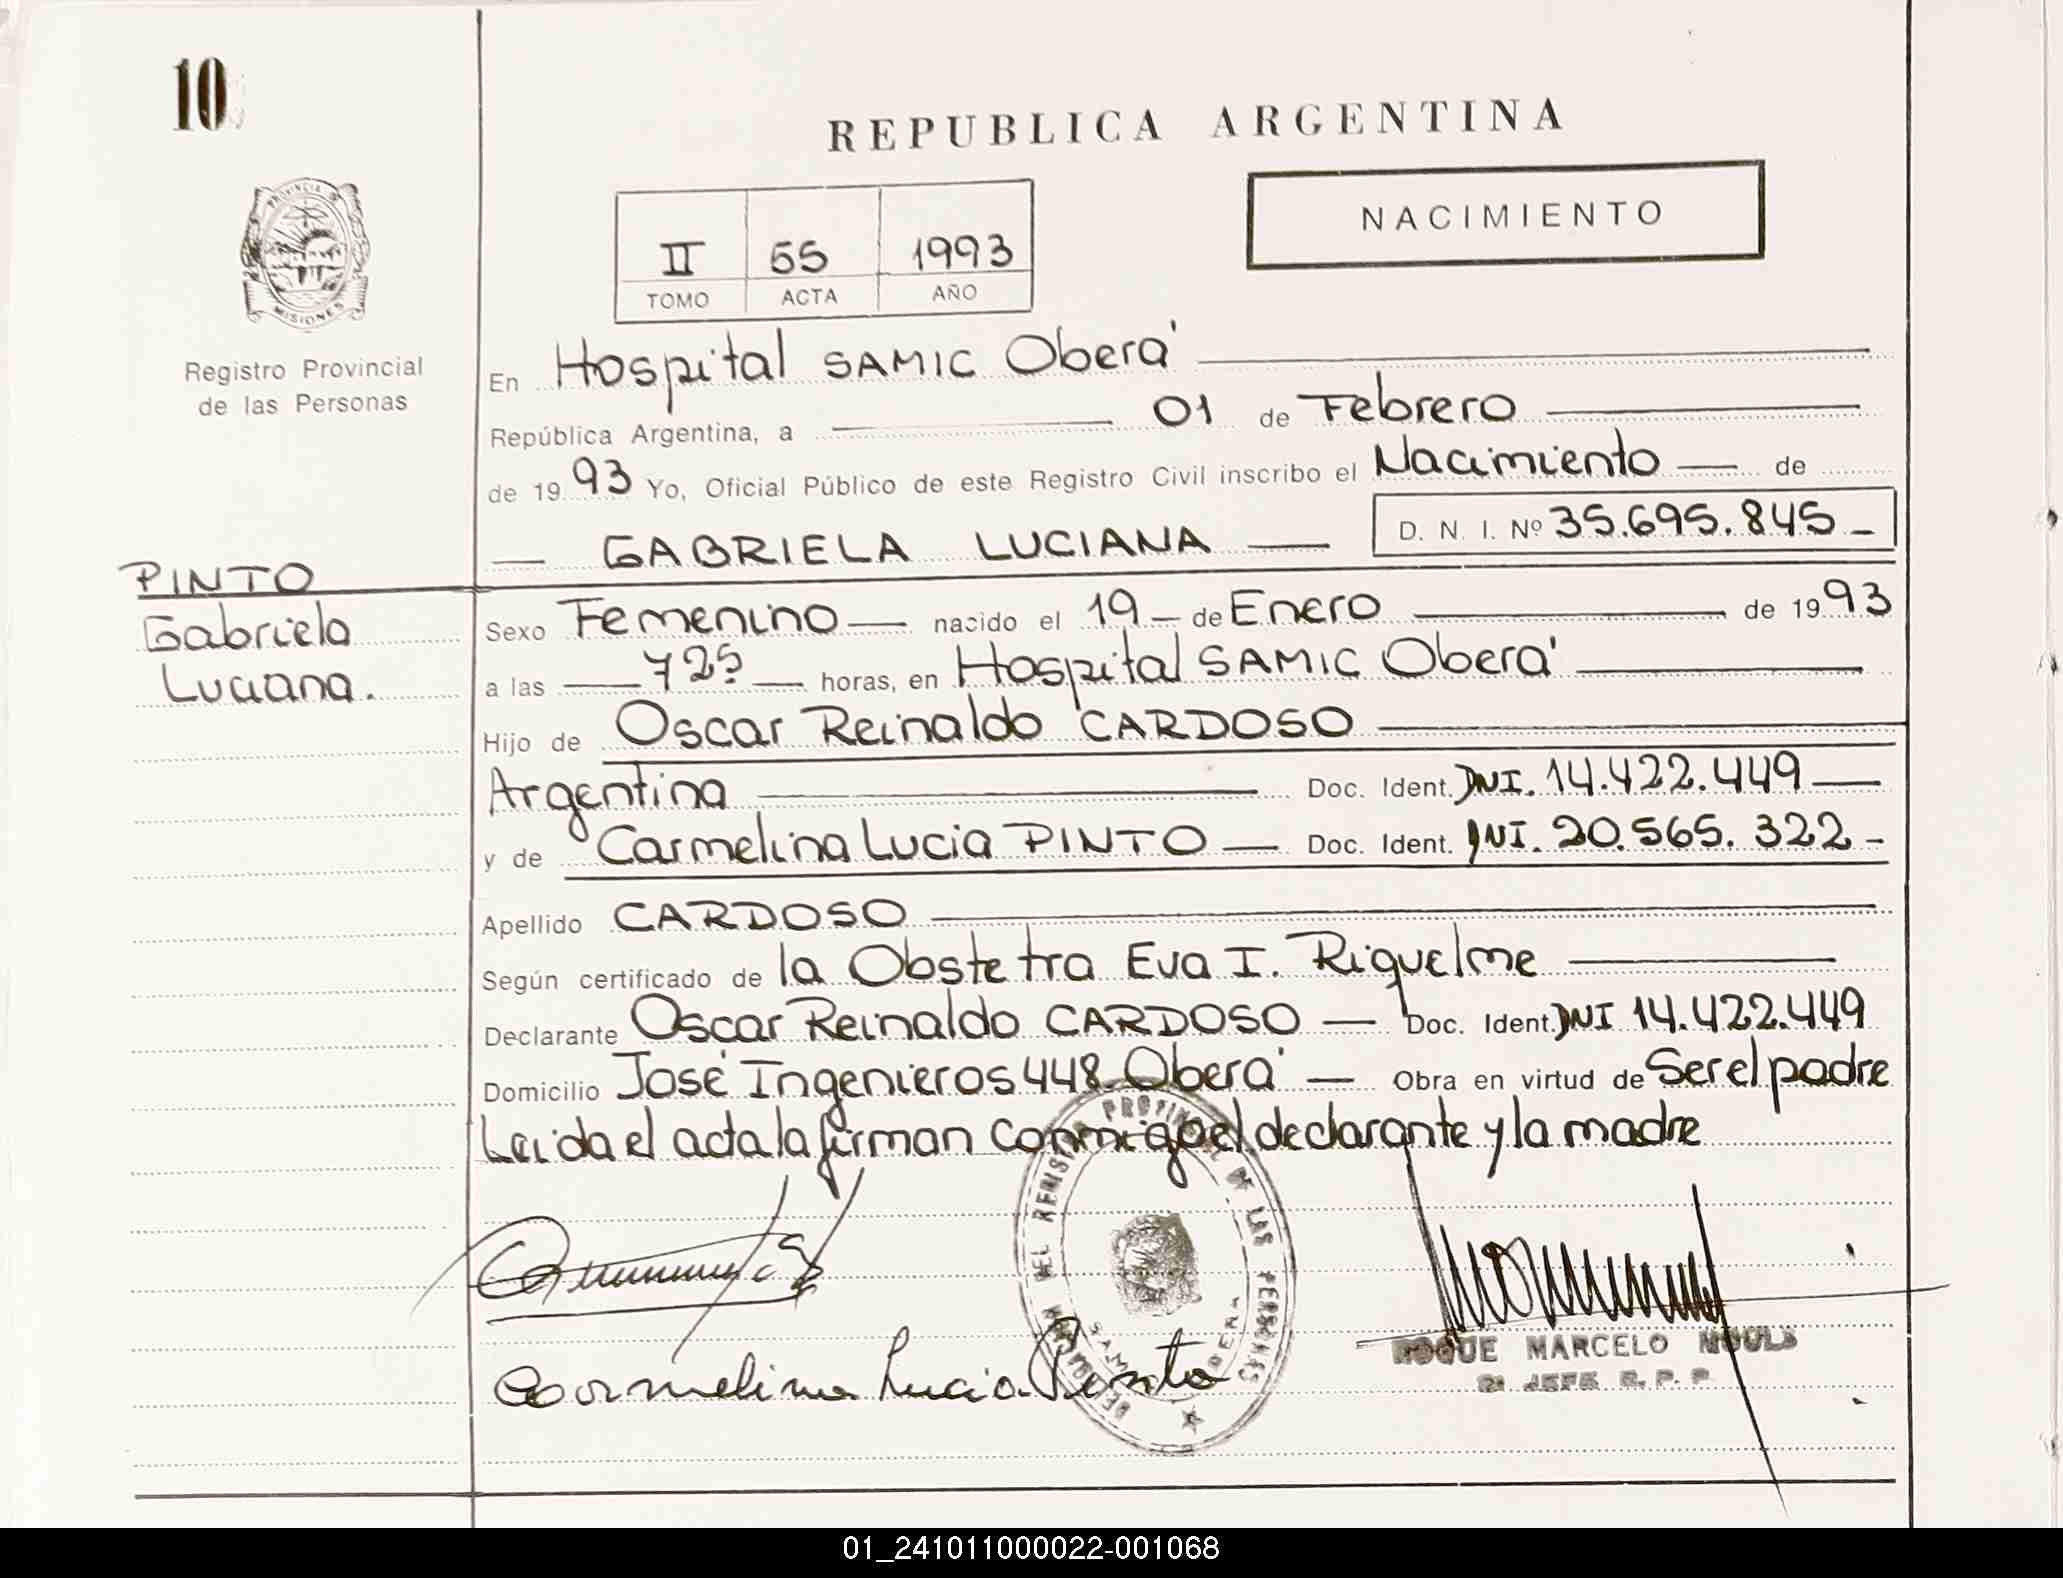 10
REPUBLICA ARGENTINA
NACIMIENTO
II 55 1993
TOMO ACTA AÑO
PROVINCIA
MISIONES
Registro Provincial
de las Personas
En Hospital SAMIC Oberá
República Argentina, a 01 de Febrero
de 1993 Yo, Oficial Público de este Registro Civil inscribo el Nacimiento de
GABRIELA LUCIANA D. N. I. Nº 35.695.845
PINTO
Gabriela
Luciana.
Sexo Femenino nacido el 19 de Enero de 1993
a las 7 25 horas, en Hospital SAMIC Oberá
Hijo de Oscar Reinaldo CARDOSO
Argentina Doc. Ident. DNI. 14.422.449
y de Carmelina Lucia PINTO Doc. Ident. DNI. 20.565.322
Apellido CARDOSO
Según certificado de la Obstetra Eva I. Riquelme
Declarante Oscar Reinaldo CARDOSO Doc. Ident. DNI 14.422.449
Domicilio José Ingenieros 448 Oberá Obra en virtud de Ser el padre
Leida el acta la firman conmigo el declarante y la madre
DEL REGISTRO PROVINCIAL DE LAS PERSONAS
Carmelina Lucia Pinto
ROQUE MARCELO
JEFE R. P. P.
01_241011000022-001068